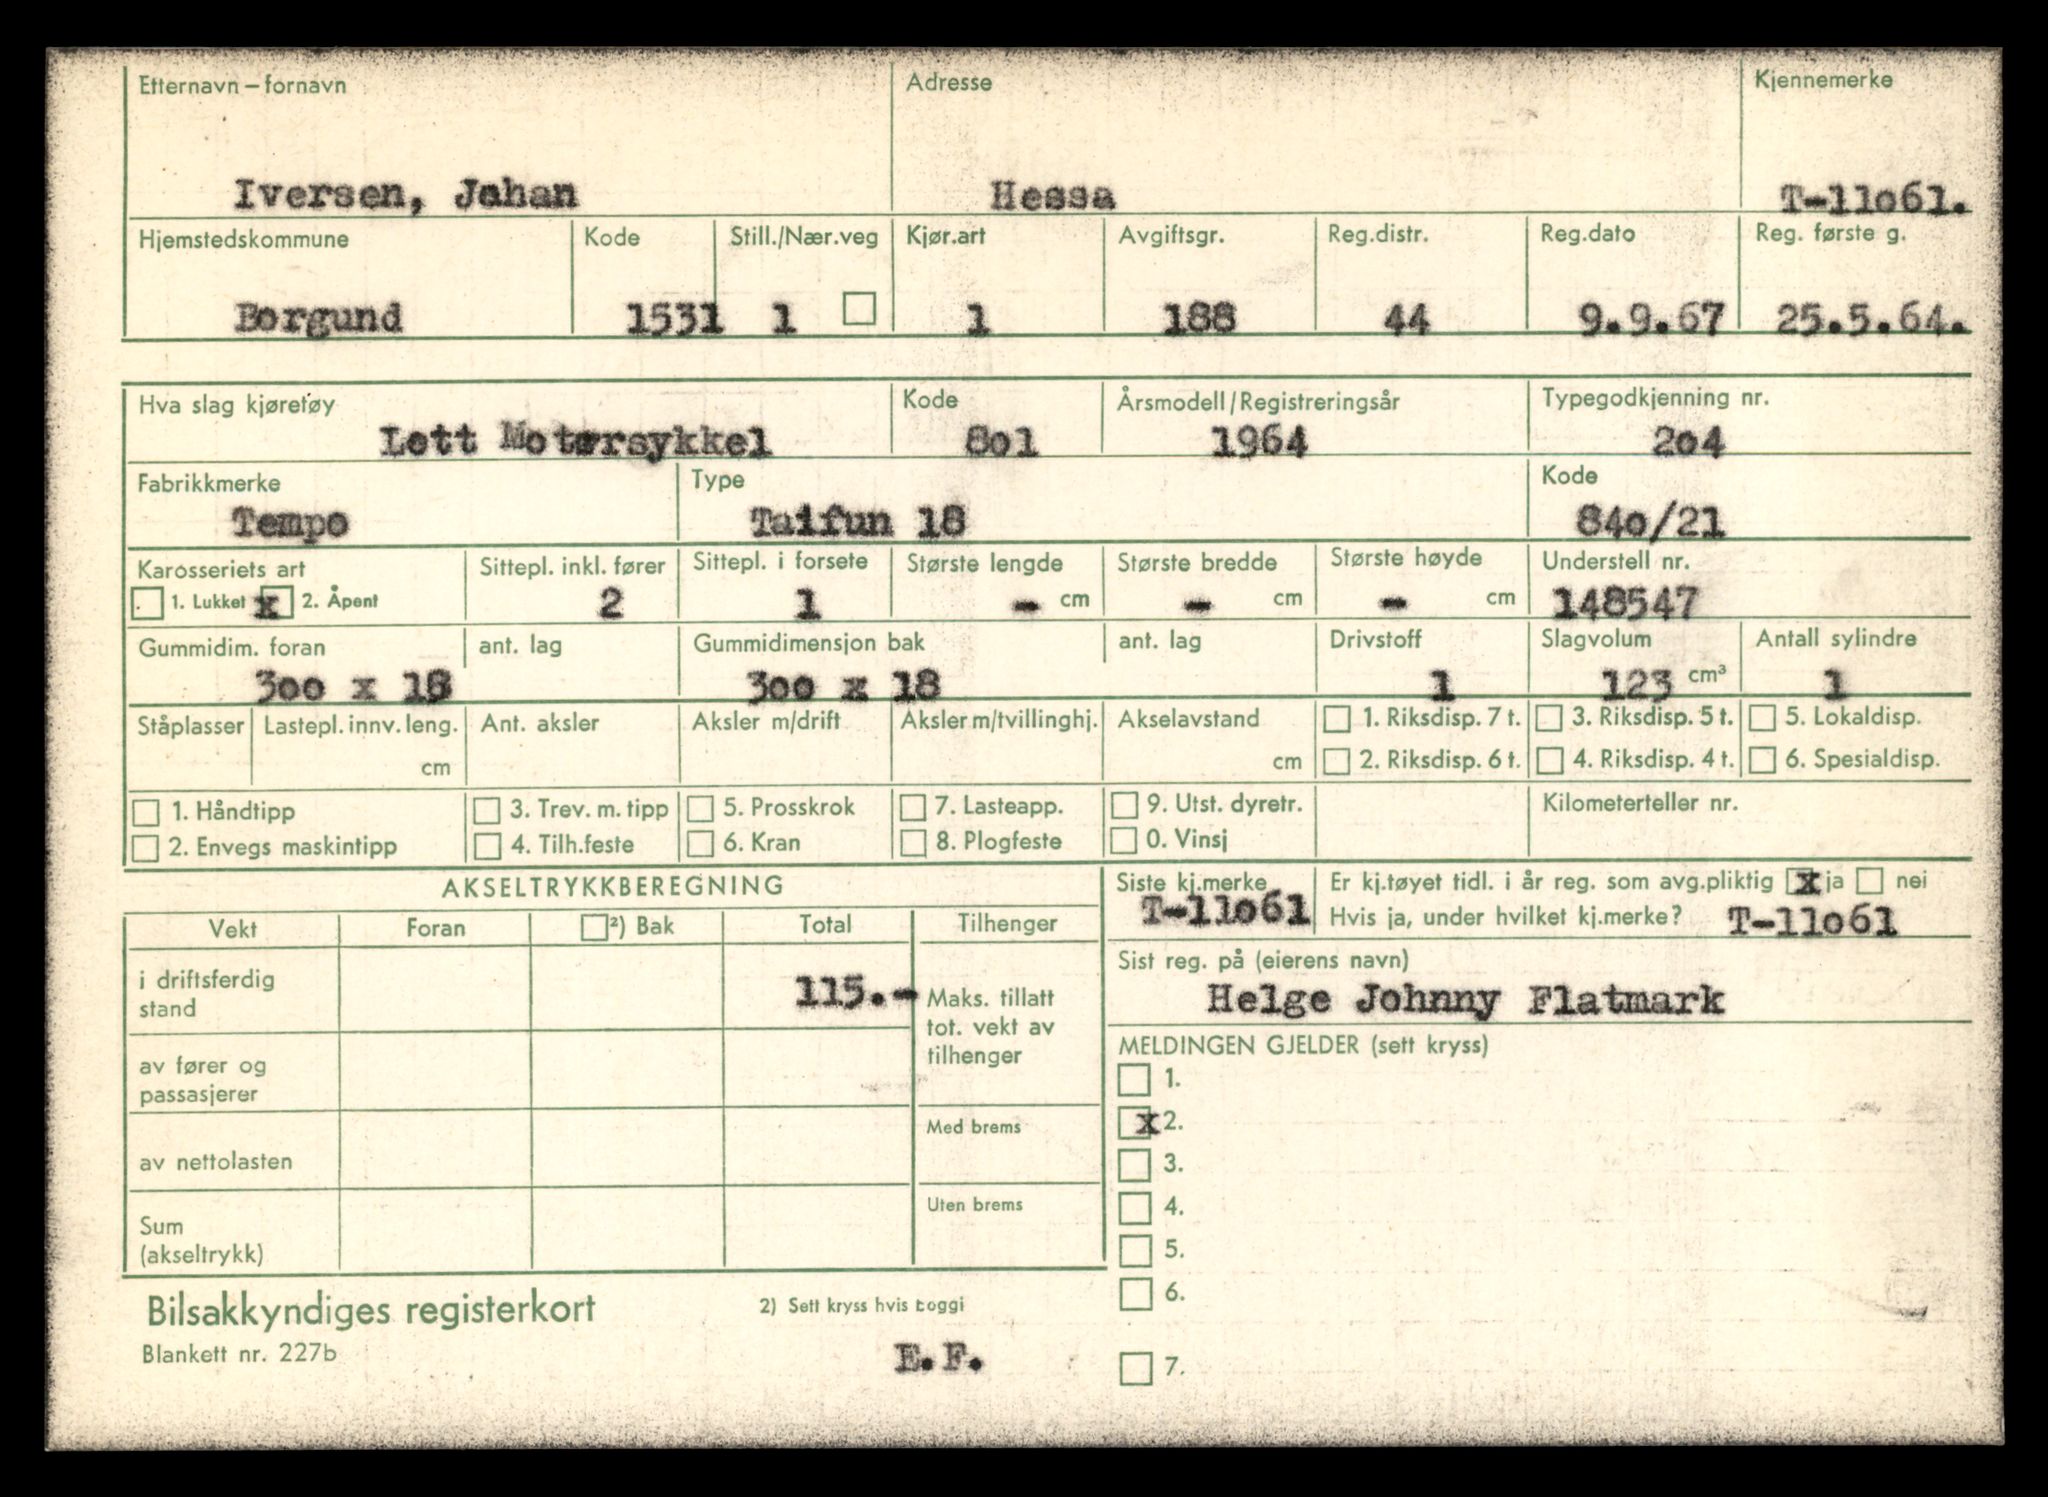 Etternavn – fornavn Adresse Kjennemerke
Iversen, Johan Hessa T-11o61.
Hjemstedskommune Kode Still./Nær.veg Kjør.art Avgiftsgr. Reg.distr. Reg.dato Reg. første g.
Borgund 1531 1 1 188 44 9.9.67 25.5.64.
Hva slag kjøretøy Kode Årsmodell/Registreringsår Typegodkjenning nr.
Lett Motorsykkel 8o1 1964 2o4
Fabrikkmerke Type Kode
Tempo Taifun 18 84o/21
Karosseriets art Sittepl. inkl. fører Sittepl. i forsete Største lengde Største bredde Største høyde Understell nr.
1. Lukket x 2. Åpent 2 1 - cm - cm - cm 148547
Gummidim. foran ant. lag Gummidimensjon bak ant. lag Drivstoff Slagvolum Antall sylindre
3oo x 18 3oo x 18 1 123 cm³ 1
Ståplasser Lastepl. innv. leng. Ant. aksler Aksler m/drift Aksler m/tvillinghj. Akselavstand 1. Riksdisp. 7 t. 3. Riksdisp. 5 t. 5. Lokaldisp.
cm cm 2. Riksdisp. 6 t. 4. Riksdisp. 4 t. 6. Spesialdisp.
1. Håndtipp 3. Trev. m. tipp 5. Prosskrok 7. Lasteapp. 9. Utst. dyretr. Kilometerteller nr.
2. Envegs maskintipp 4. Tilh.feste 6. Kran 8. Plogfeste 0. Vinsj
AKSELTRYKKBEREGNING Siste kj.merke Er kj.tøyet tidl. i år reg. som avg.pliktig x ja nei
T-11o61 Hvis ja, under hvilket kj.merke? T-11o61
Vekt Foran ²) Bak Total Tilhenger
Sist reg. på (eierens navn)
i driftsferdig
stand 115.- Maks. tillatt
tot. vekt av
tilhenger
Helge Johnny Flatmark
MELDINGEN GJELDER (sett kryss)
av fører og
passasjerer
1.
Med brems x 2.
av nettolasten 3.
Uten brems 4.
Sum
(akseltrykk) 5.
6.
Bilsakkyndiges registerkort 2) Sett kryss hvis boggi
Blankett nr. 227b E.F. 7.